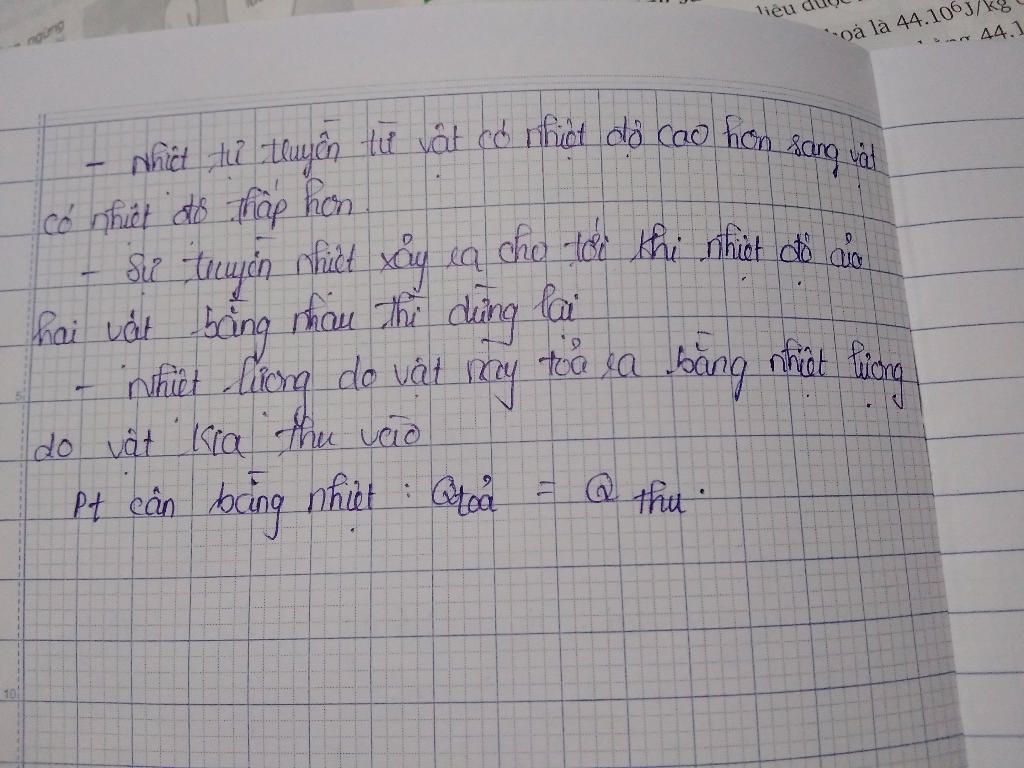 ngừng
liệu được
hoả là 44.10⁶J/kg
44.1
- Nhiệt tự truyền từ vật có nhiệt độ cao hơn sang vật
có nhiệt độ thấp hơn.
- Sự truyền nhiệt xảy ra cho tới khi nhiệt độ của
hai vật bằng nhau thì dừng lại
- Nhiệt lượng do vật này tỏa ra bằng nhiệt lượng
5
do vật kia thu vào
Pt cân bằng nhiệt : Qtoả = Q thu.
10